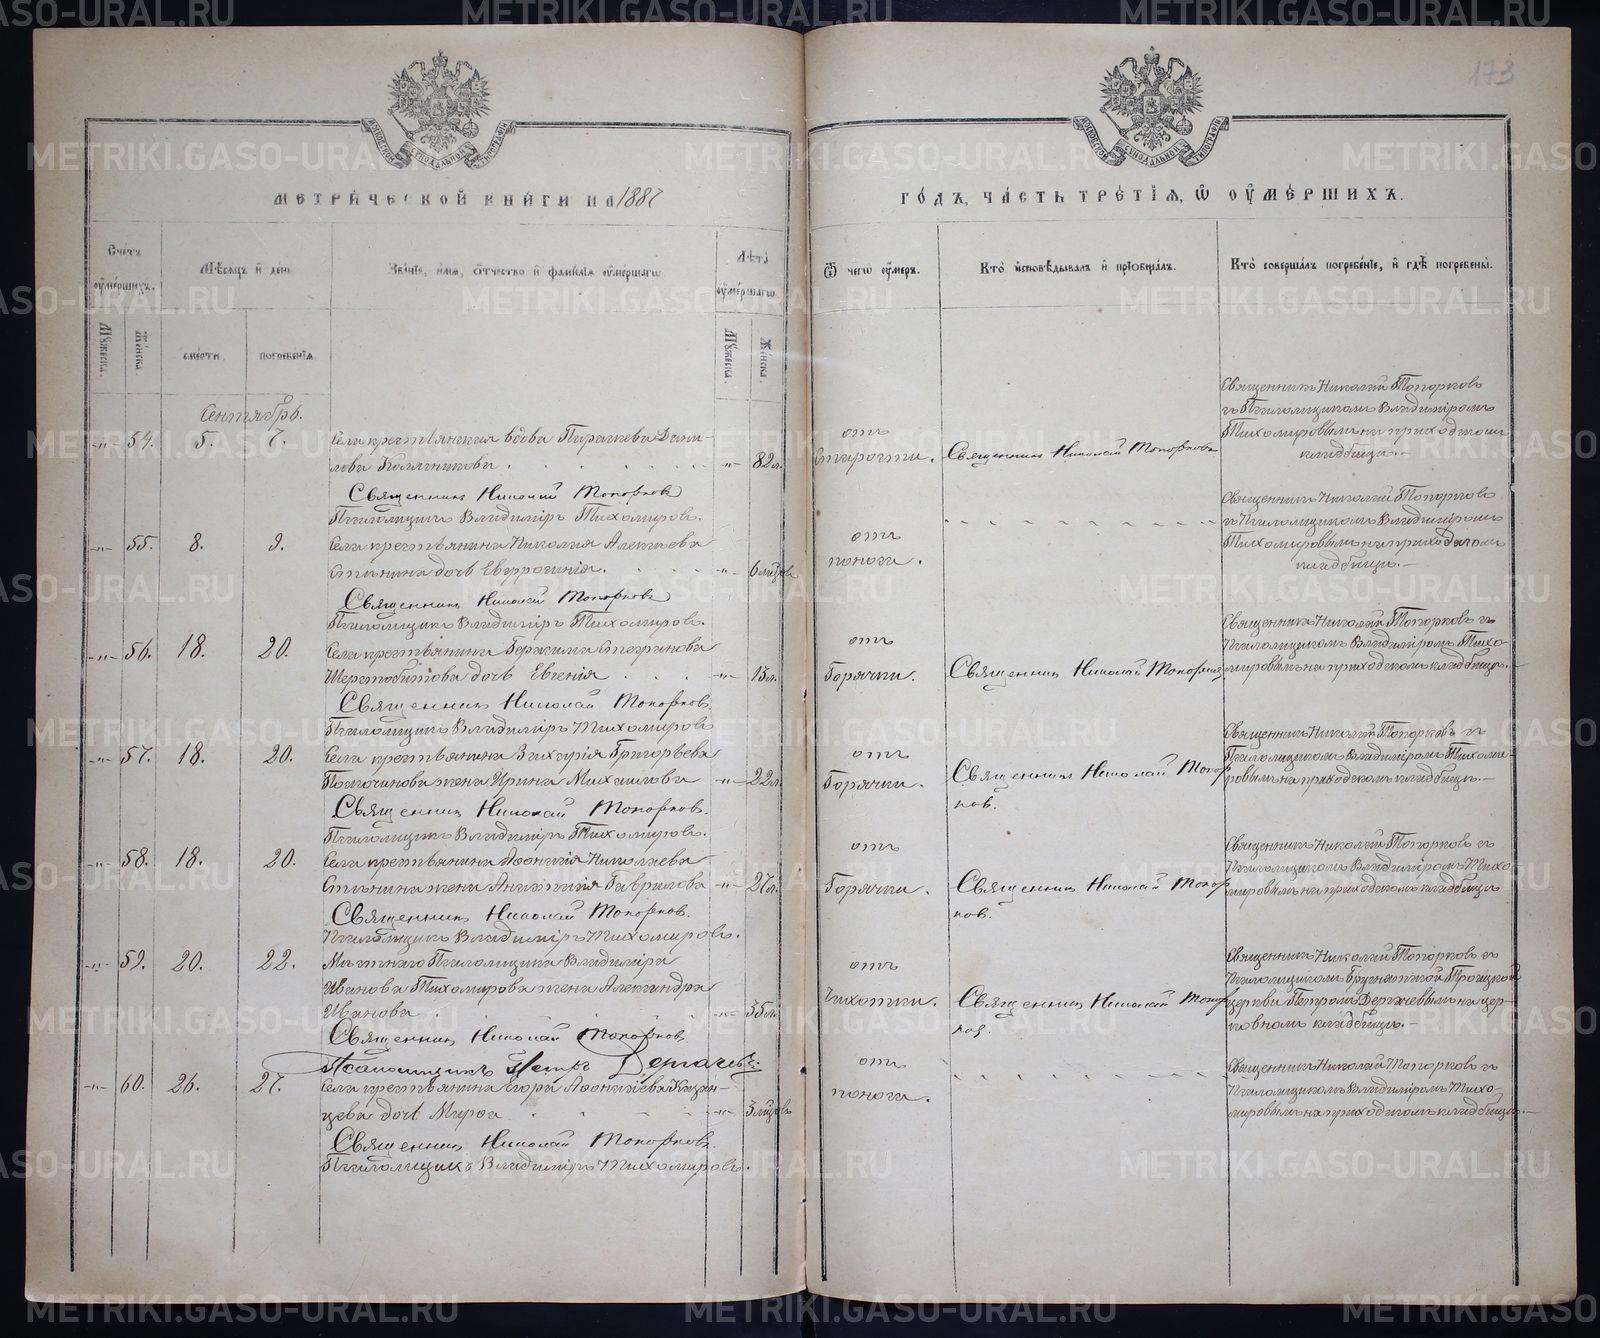 173
МОСКОВСКОЙ СѴНОДАЛЬНОЙ ТИПОГРАФІИ
МОСКОВСКОЙ СѴНОДАЛЬНОЙ ТИПОГРАФІИ
МЕТРИ́ЧЕСКОЙ КНИ́ГИ НА 1887
ГО́ДЪ, ЧА́СТЬ ТРЕ́ТІѦ, Ѽ ОУ҆МЕ́РШИХЪ.
Сче́тъ оу҆ме́ршихъ.
Мѣ́сѧцъ и҆ де́нь
Зва́нїе, и҆́мѧ, ѻ҆́тчество и҆ фами́лїѧ оу҆ме́ршагѡ
Лѣ́та оу҆ме́ршагѡ.
Ѿ чегѡ̀ оу҆́меръ.
Кто̀ и҆сповѣ́дывалъ и҆ прїѡбща́лъ.
Кто̀ соверша́лъ погребе́нїе, и҆ гдѣ̀ погребены̀.
Мꙋ́жеска.
Же́нска.
сме́рти.
погребе́нїѧ.
Мꙋ́жеска.
Же́нска.
Сентябрь.
-"- 54. 5. 7. Села крестьянская вдова Параскева Дани-
лова . . . . . . -"- 82 л.
от старости. Священник Николай Топорков
Священникъ Николай Топорковъ
съ Псаломщикомъ Владиміромъ
Тихомировымъ на приходском
кладбищѣ.-
Священник Николай Топорков
Псаломщикъ Владиміръ Тихомировъ.
-"- 55. 8. 9. Села крестьянина Николая Алексѣева
дочь Евфросинія. . . . . -"- 6 мѣсяцевъ
отъ поноса.
Священникъ Николай Топорковъ
съ Псаломщикомъ Владиміромъ
Тихомировымъ на приходском
кладбищѣ.-
Священник Николай Топорков
Псаломщикъ Владиміръ Тихомировъ.
-"- 56. 18. 20. Села крестьянина Герасима
Шерстобитова дочь Евгенія . . . -"- 15 л.
отъ Горячки. Священник Николай Топорков
Священникъ Николай Топорковъ съ
Псаломщикомъ Владиміромъ Тихо-
мировымъ на приходском кладбищѣ.-
Священник Николай Топорков.
Псаломщикъ Владиміръ Тихомировъ
-"- 57. 18. 20. Села крестьянина Захарія Григорьева
жена Ирина Михаилова -"- 22 л.
отъ Горячки. Священник Николай Топор
ков.
Священникъ Николай Топорковъ съ
Псаломщикомъ Владиміромъ Тихоми-
ровымъ на приходском кладбищѣ.-
Священник Николай Топорков.
Псаломщикъ Владиміръ Тихомировъ.
-"- 58. 18. 20. Села крестьянина Николаева
жена Анастасія Гаврилова -"- 27 л.
отъ Горячки. Священник Николай Топор
ков.
Священникъ Николай Топорковъ съ
Псаломщикомъ Владиміромъ Тихо-
мировымъ на приходском кладбищѣ
Священник Николай Топорков.
Псаломщикъ Владиміръ Тихомировъ.
-"- 59. 20. 22. Мѣстнаго Псаломщика Владиміра
Иванова Тихомирова жена Александра
Иванова . . . . -"- 35 л.
отъ Чахотки. Священник Николай Топор
ков.
Священникъ Николай Топорковъ съ
Псаломщикомъ Троицкой
церкви Петромъ на цер-
ковномъ кладбищѣ.-
Священник Николай Топорков.
Псаломщикъ Петръ
-"- 60. 26. 27. Села крестьянина Егора Казан-
цева дочь . . . . -"- 3 мѣсяцевъ
отъ поноса.
Священникъ Николай Топорковъ съ
Псаломщикомъ Владиміромъ Тихо-
мировымъ на приходском кладбищѣ.-
Священник Николай Топорков.
Псаломщикъ Владиміръ Тихомировъ.
METRIKI.GASO-URAL.RU